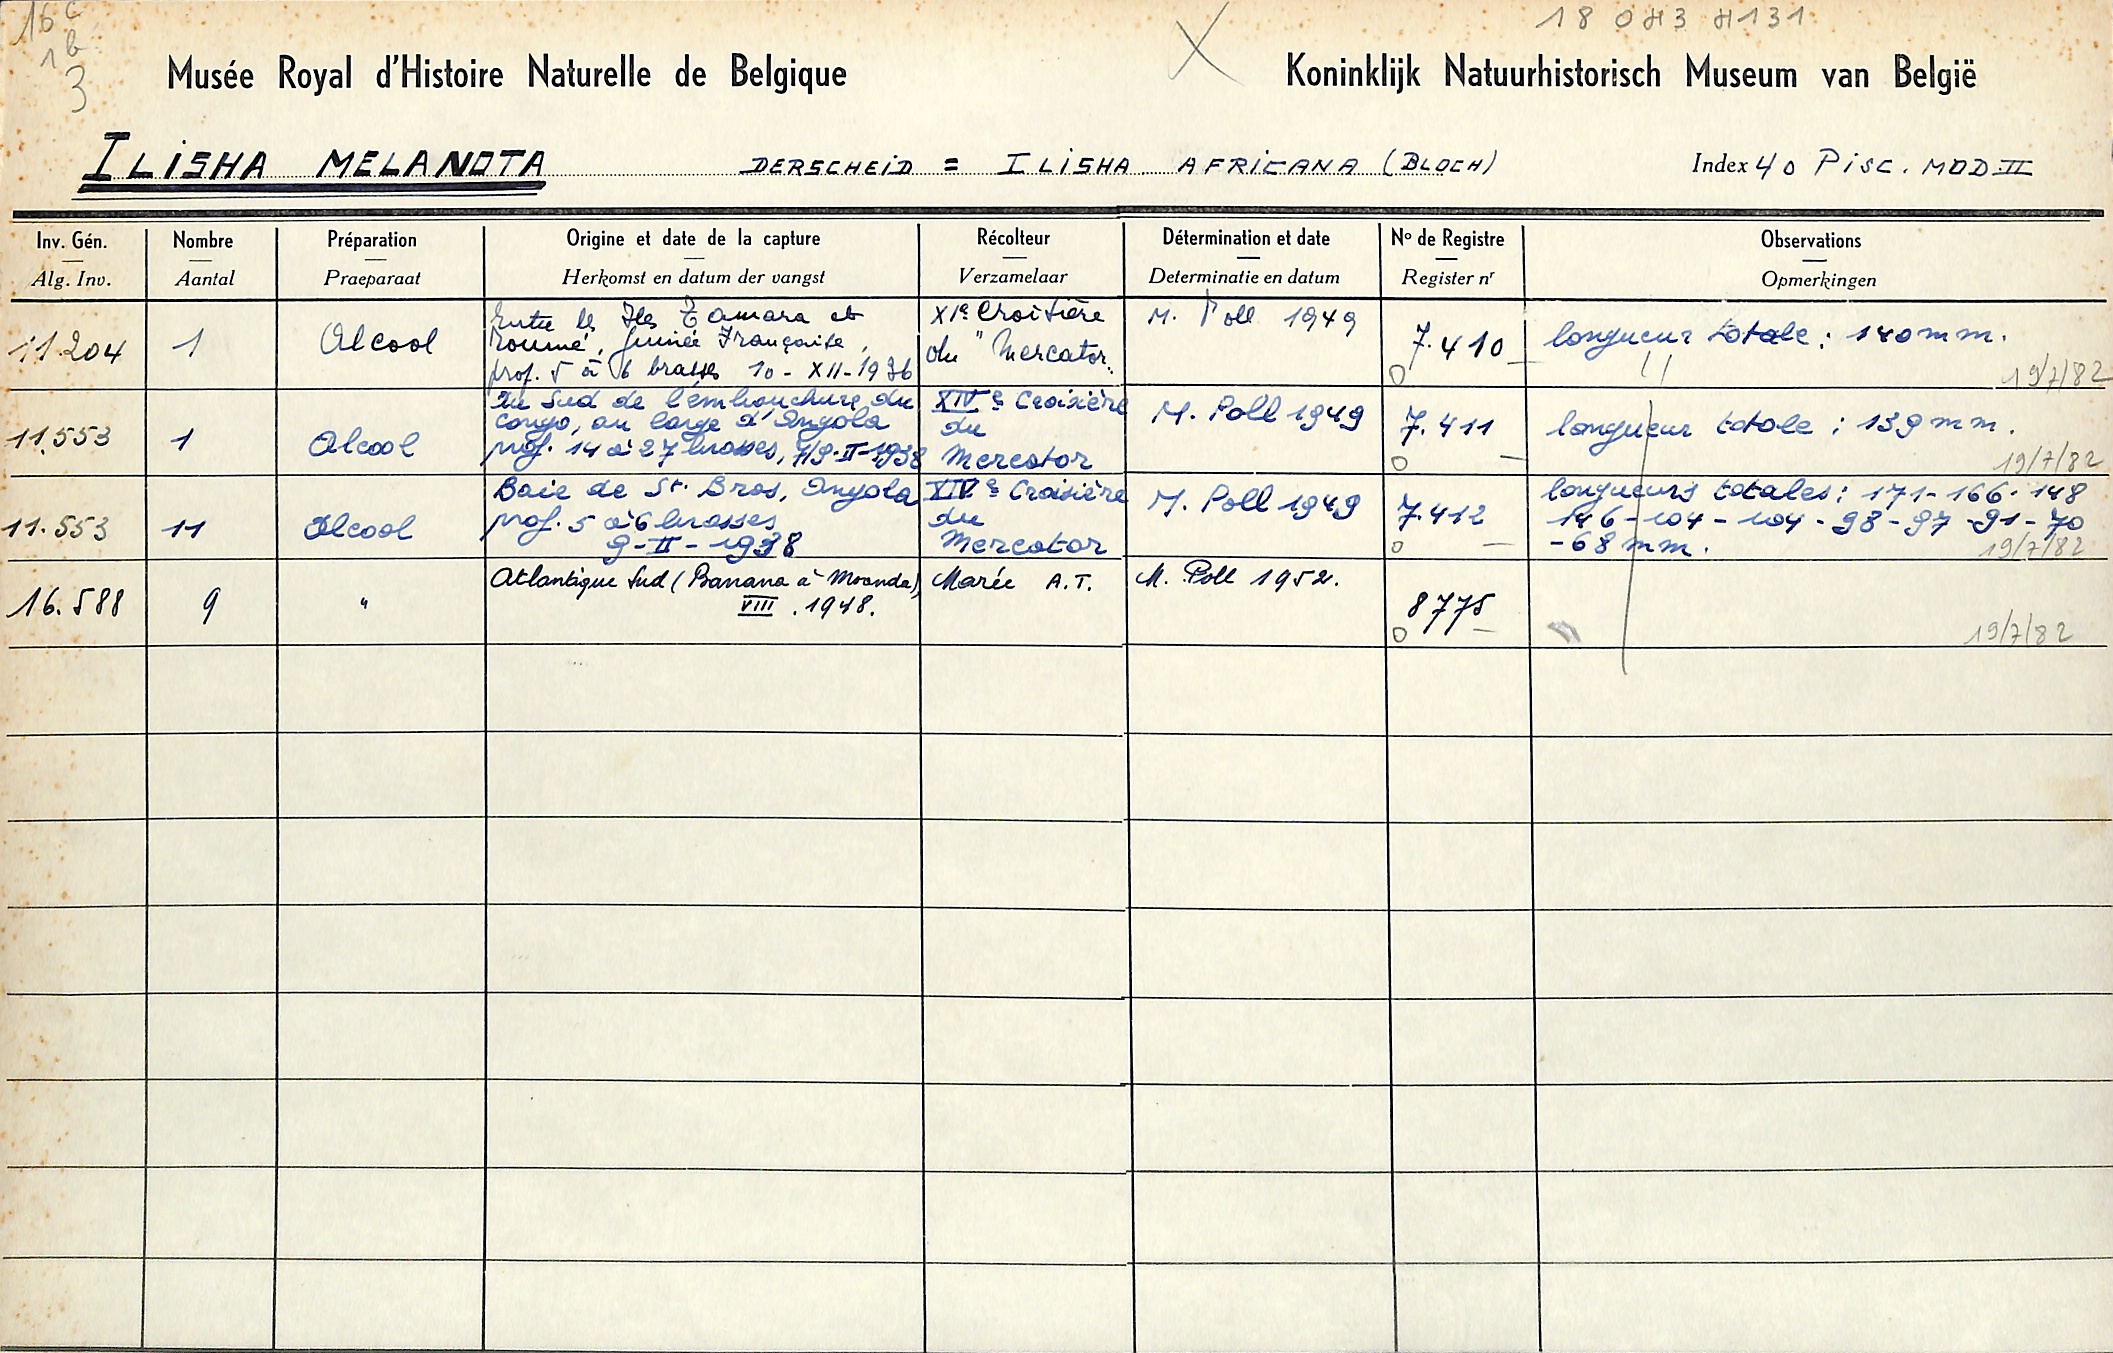 16 c
1b
3
18 043 4131
X
Musée Royal d'Histoire Naturelle de Belgique Koninklijk Natuurhistorisch Museum van België
ILISHA MELANOTA DERSCHEID = ILISHA AFRICANA (BLOCH) Index 40 PISC. MOD. II
Inv. Gén. Nombre Préparation Origine et date de la capture Récolteur Détermination et date No de Registre Observations
Alg. Inv. Aantal Praeparaat Herkomst en datum der vangst Verzamelaar Determinatie en datum Register nr Opmerkingen
11.204 1 Alcool
Entre les Iles Tamara et
Roumé, Guinée Française,
prof. 5 à 6 brasses 10-XII-1936
XIe Croisière
du "Mercator"
M. Poll 1949
7.410
longueur totale : 140 mm.
19/7/82
11.553 1 Alcool
Au Sud de l'embouchure du
Congo, au large d'Angola
prof. 14 à 27 brasses, 7/9-II-1938
XIVe Croisière
du
Mercator
M. Poll 1949
7.411
longueur totale : 139 mm.
19/7/82
11.553 11 Alcool
Baie de St. Bras, Angola
prof. 5 à 6 brasses
9-II-1938
XIVe Croisière
du
Mercator
M. Poll 1949
7.412
longueurs totales : 171-166-148
146-104-104-98-97-91-70
-68 mm.
19/7/82
16.588 9 "
Atlantique Sud (Banana à Moanda)
VIII . 1948.
Marée A.T.
M. Poll 1952.
8775
19/7/82